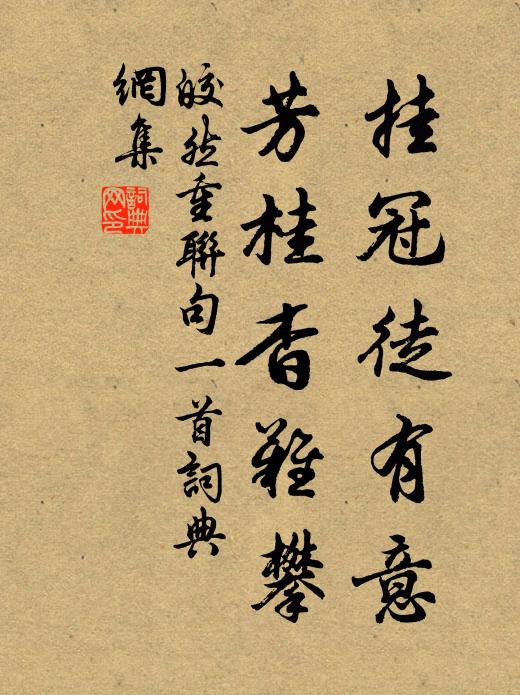 挂冠徒有意
芳桂杳難攀
皎然重聯句一首詞典
網集
詞典網印